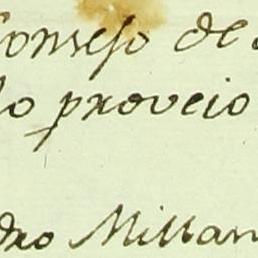 Consejo de
lo proveio
dro Millan